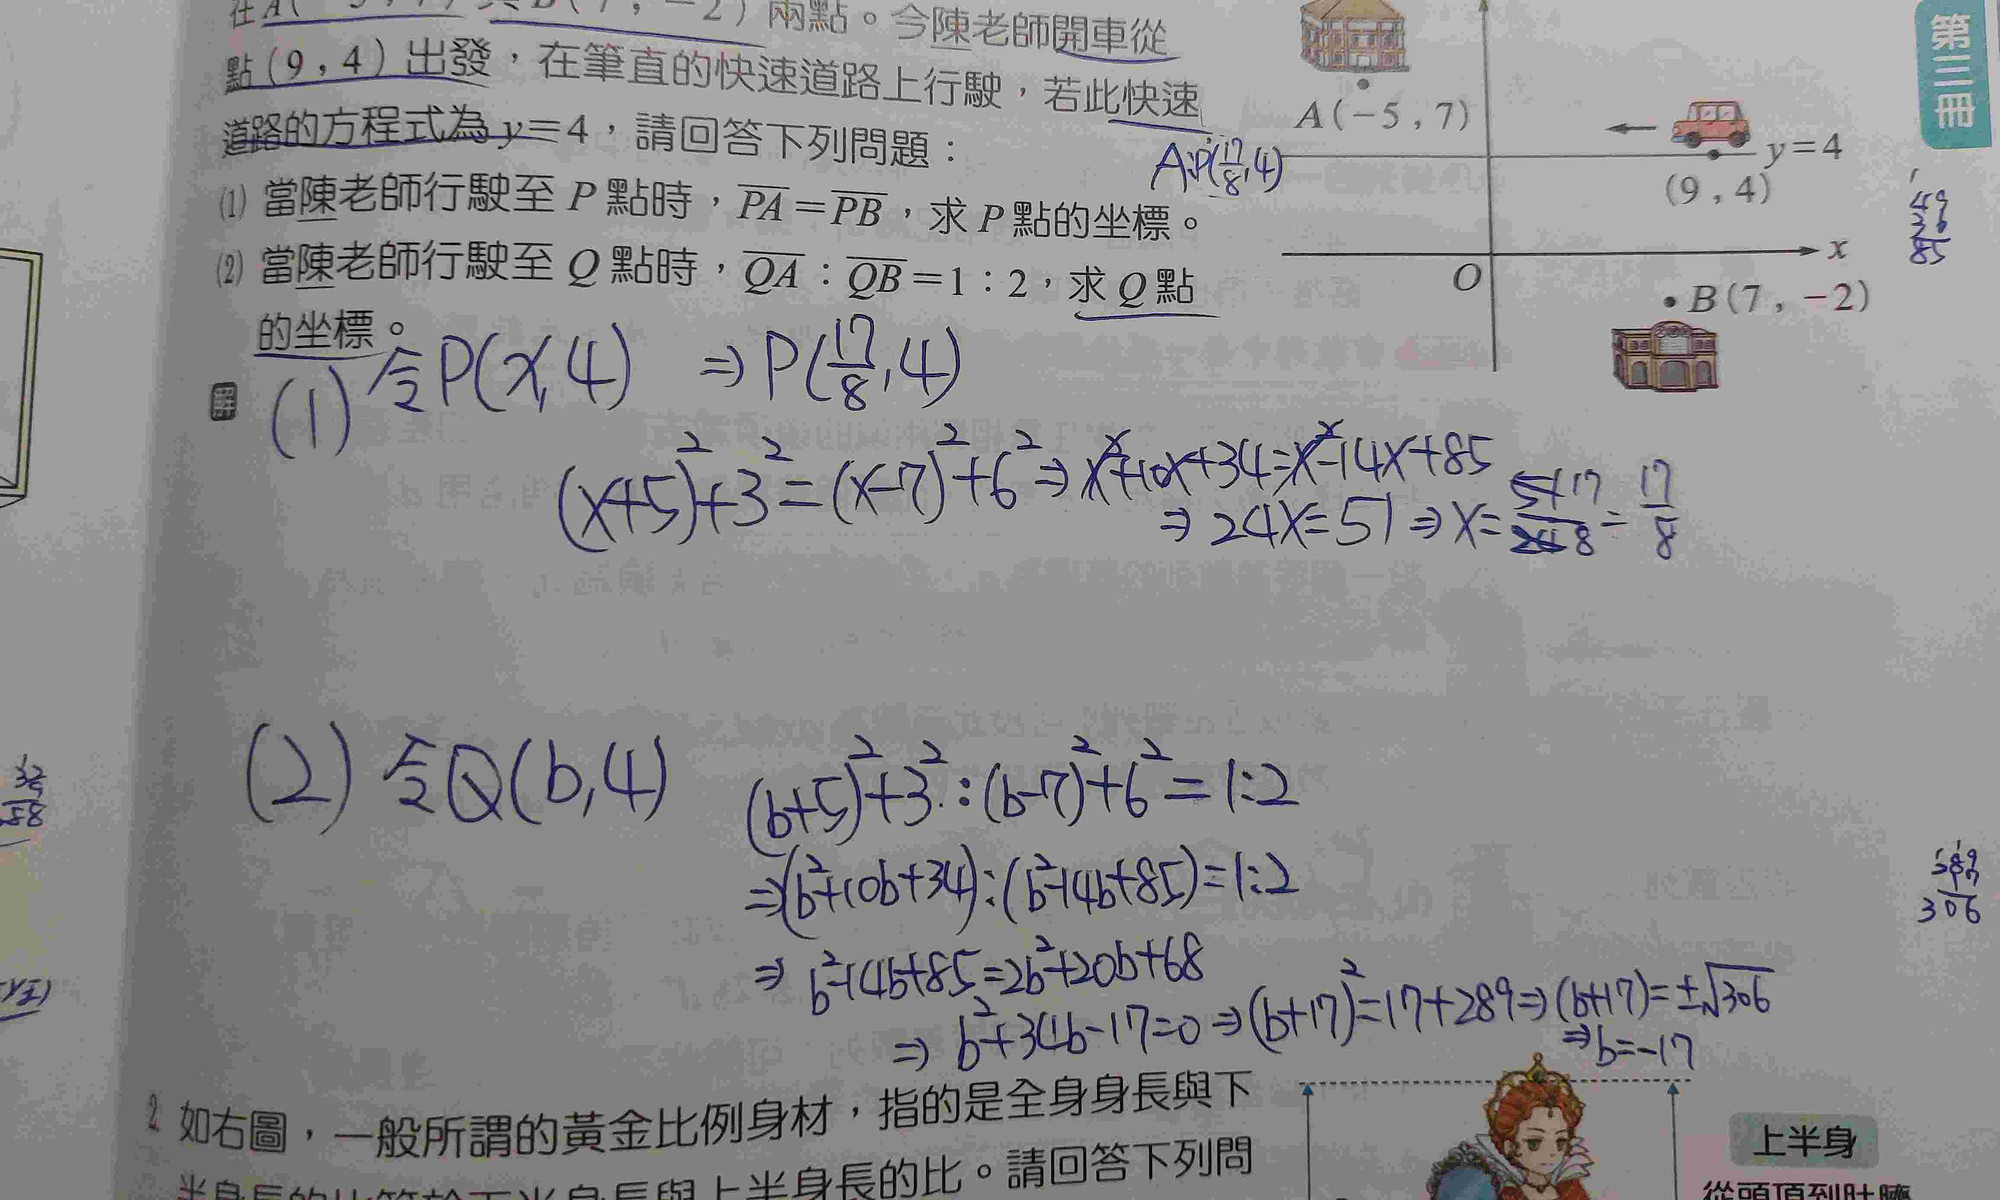 兩點。今陳老師開車從
點(9,4)出發,在筆直的快速道路上行駛,若此快速
道路的方程式為y=4,請回答下列問題:
⑴ 當陳老師行駛至P點時,PA=PB,求P點的坐標。
⑵ 當陳老師行駛至Q點時,QA:QB=1:2,求Q點
的坐標。
A:P(17/8,4)
A(-5,7)
y=4
(9,4)
x
O
B(7,-2)
第三冊
49
36
85
解
(1) 令P(x,4) ⇒ P(17/8,4)
(x+5)²+3²=(x-7)²+6² ⇒ x²+10x+34=x²-14x+85
⇒ 24x=51 ⇒ x= 17/8 = 17/8
(2) 令Q(b,4) (b+5)²+3²:(b-7)²+6²=1:2
⇒(b²+10b+34):(b²-14b+85)=1:2
⇒ b²-14b+85=2b²+20b+68
⇒ b²+34b-17=0 ⇒ (b+17)²=17+289 ⇒ (b+17)=±√306
⇒ b=-17
306
2 如右圖,一般所謂的黃金比例身材,指的是全身身長與下
半身長的比等於下半身長與上半身長的比。請回答下列問
上半身
從頭頂到肚臍